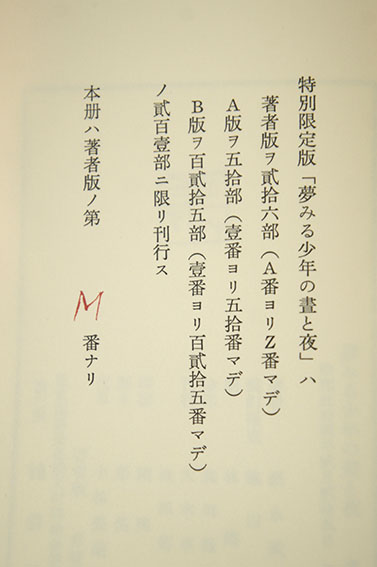 特別限定版「夢みる少年の晝と夜」ハ
著者版ヲ貳拾六部（A番ヨリZ番マデ）
A版ヲ五拾部（壹番ヨリ五拾番マデ）
B版ヲ百貳拾五部（壹番ヨリ百貳拾五番マデ）
ノ貳百壹部ニ限リ刊行ス
本册ハ著者版ノ第 M 番ナリ